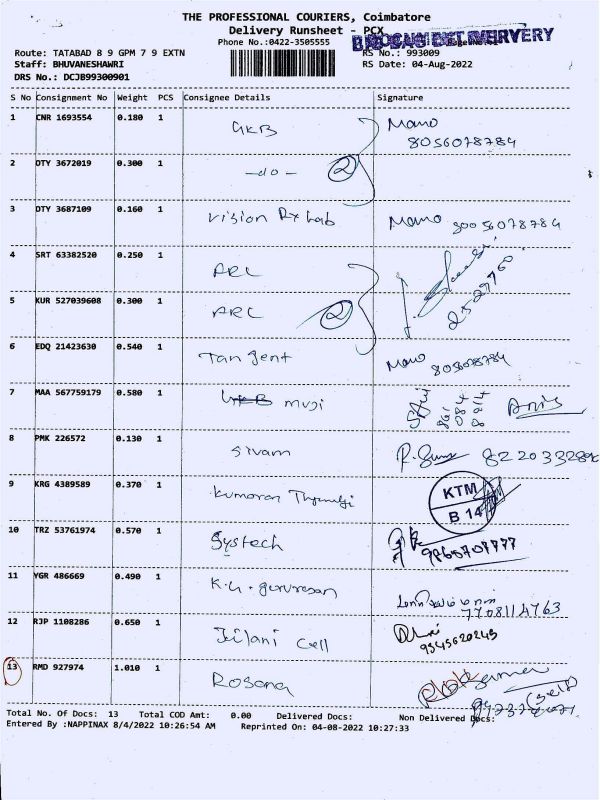 THE PROFESSIONAL COURIERS, Coimbatore
Delivery Runsheet - PCX
Phone No.:0422-3505555
Route: TATABAD 8 9 GPM 7 9 EXTN
RS No.: 993009
Staff: BHUVANESHAWRI
RS Date: 04-Aug-2022
DRS No.: DCJB99300901
S No Consignment No Weight PCS Consignee Details Signature
1 CNR 1693554 0.180 1 GKB Mano
8056078784
2 DTY 3672019 0.300 1 -do- 2
3 DTY 3687109 0.160 1 Vision Rx Lab Mano
4 SRT 63382520 0.250 1 ARC
5 KUR 527039608 0.300 1 ARC 2
6 EDQ 21423630 0.540 1 Tangent Mano
7 MAA 567759179 0.580 1 muji
8 PMK 226572 0.130 1 Sivam
9 KRG 4389589 0.370 1 Kumaran KTM
B 14
10 TRZ 53761974 0.570 1 Systech
9865707777
11 YGR 486669 0.490 1
7708114763
12 RJP 1108286 0.650 1 Jilani Cell
9345620249
13 RMD 927974 1.010 1 Rosana
Total No. Of Docs: 13 Total COD Amt: 0.00 Delivered Docs: Non Delivered Docs:
Entered By :NAPPINAX 8/4/2022 10:26:54 AM Reprinted On: 04-08-2022 10:27:33